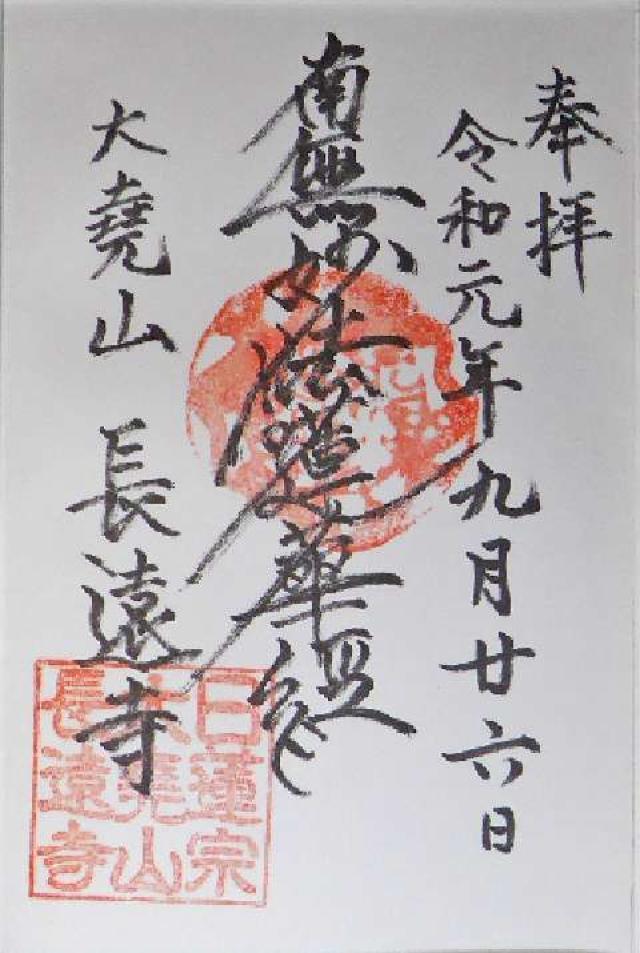 奉拝
令和元年九月廿六日
南無妙法蓮華経
大堯山 長遠寺
日蓮宗
大堯山
長遠寺